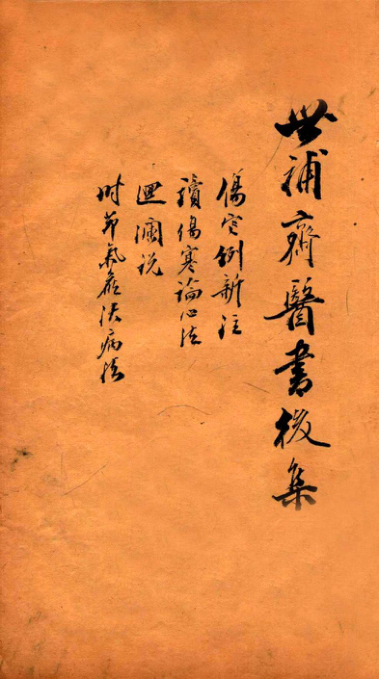 世補齋醫書後集
傷寒例新注
讀傷寒論心法
迴瀾說
时节氣候决病法